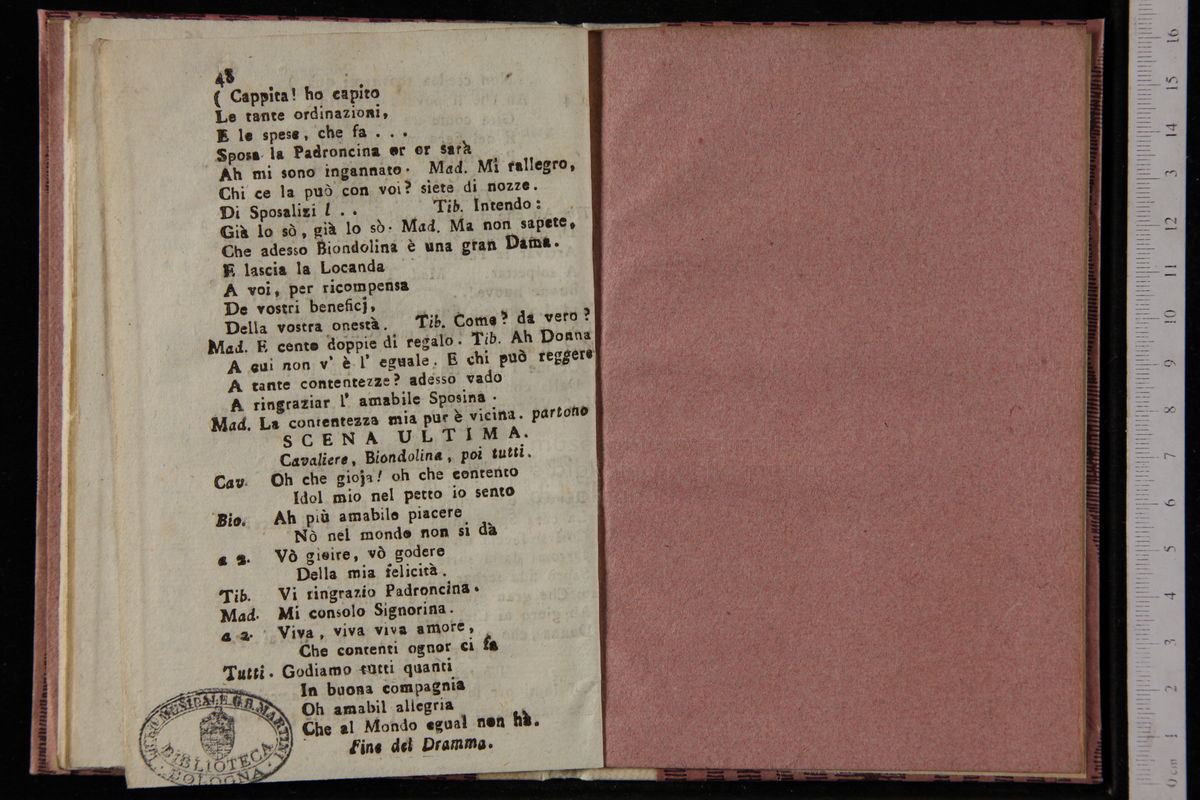 48
( Cappita! ho capito
Le tante ordinazioni,
E le spese, che fa . . .
Sposa la Padroncina or or sarà
Ah mi sono ingannato. Mad. Mi rallegro,
Chi ce la può con voi? siete di nozze.
Di Sposalizi ! . . Tib. Intendo:
Già lo sò, già lo sò. Mad. Ma non sapete,
Che adesso Biondolina è una gran Dama.
E lascia la Locanda
A voi, per ricompensa
De vostri beneficj,
Della vostra onestà. Tib. Come? da vero?
Mad. E cento doppie di regalo. Tib. Ah Donna
A cui non v' è l' eguale. E chi può reggere
A tante contentezze? adesso vado
A ringraziar l' amabile Sposina.
Mad. La contentezza mia pur è vicina. partono
SCENA ULTIMA.
Cavaliere, Biondolina, poi tutti.
Cav. Oh che gioja! oh che contento
Idol mio nel petto io sento
Bio. Ah più amabile piacere
Nò nel mondo non si dà
a 2. Vò gioire, vò godere
Della mia felicità.
Tib. Vi ringrazio Padroncina.
Mad. Mi consolo Signorina.
a 2. Viva, viva viva amore,
Che contenti ognor ci fa
Tutti. Godiamo tutti quanti
In buona compagnia
Oh amabil allegria
Che al Mondo egual non hà.
Fine del Dramma.
MUSICALE G.B. MARTINI
BIBLIOTECA
BOLOGNA
16
15
14
3
12
11
10
9
8
7
6
5
4
3
2
1
0 cm